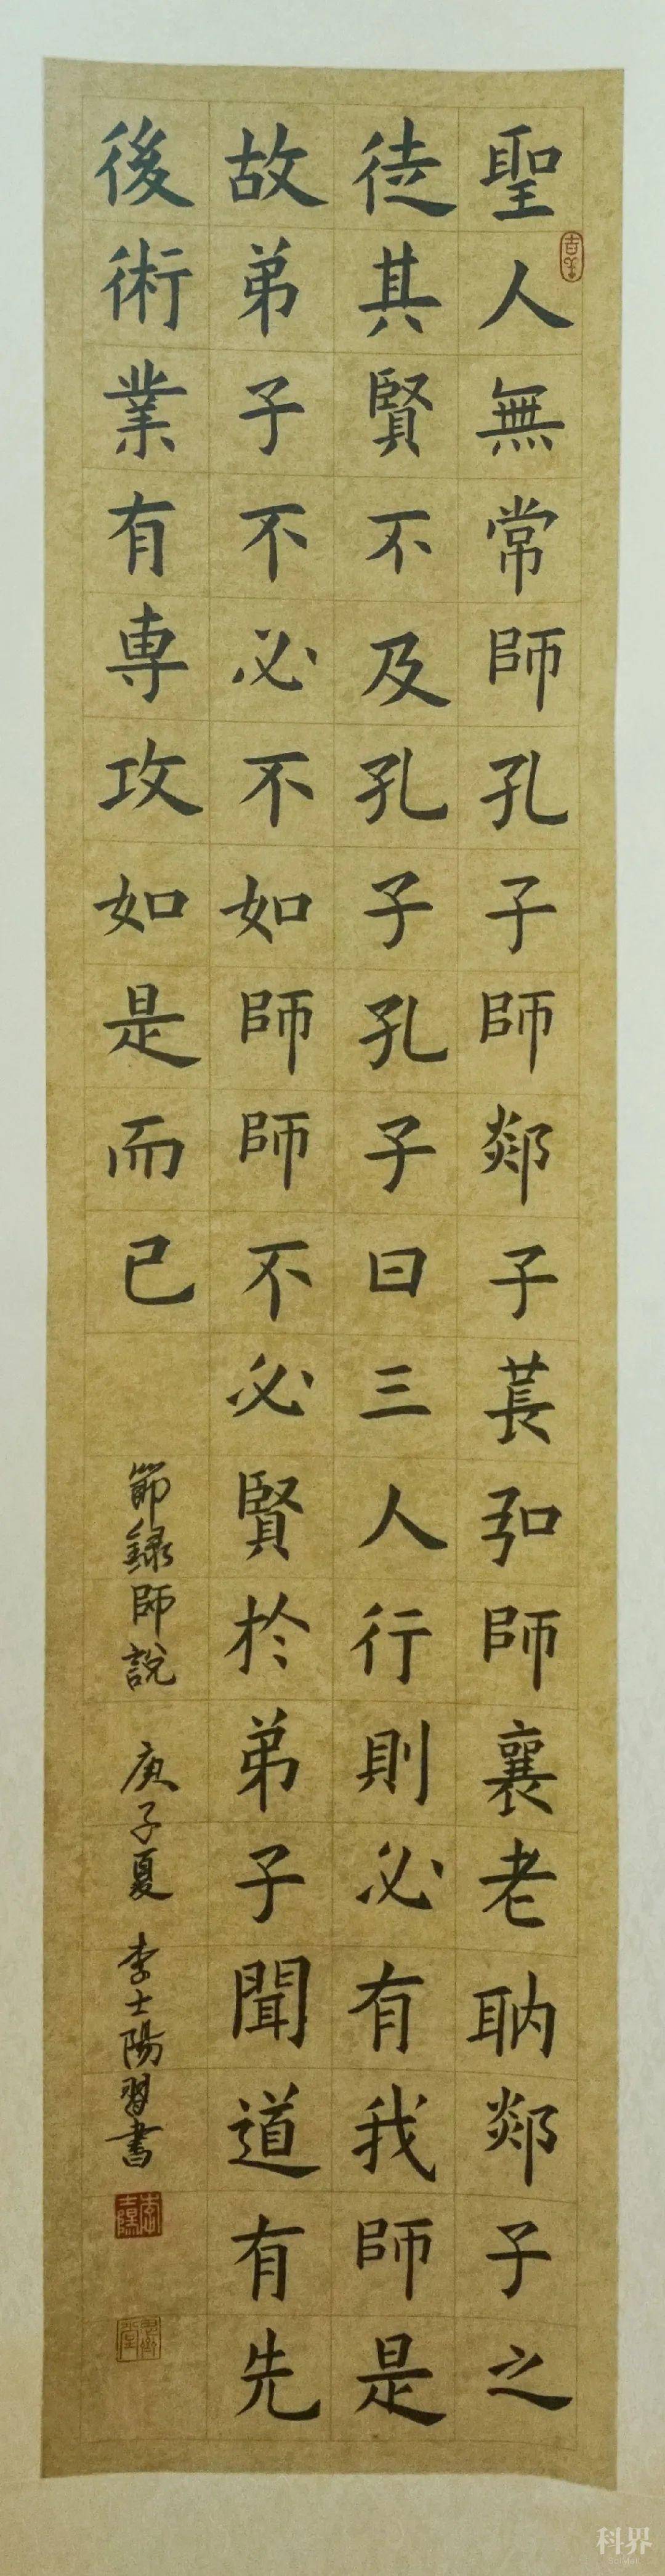 聖人無常師孔子師郯子萇弘師襄老聃郯子之
徒其賢不及孔子孔子曰三人行則必有我師是
故弟子不必不如師師不必賢於弟子聞道有先
後術業有專攻如是而已
節録師說 庚子夏 李士陽習書
科界